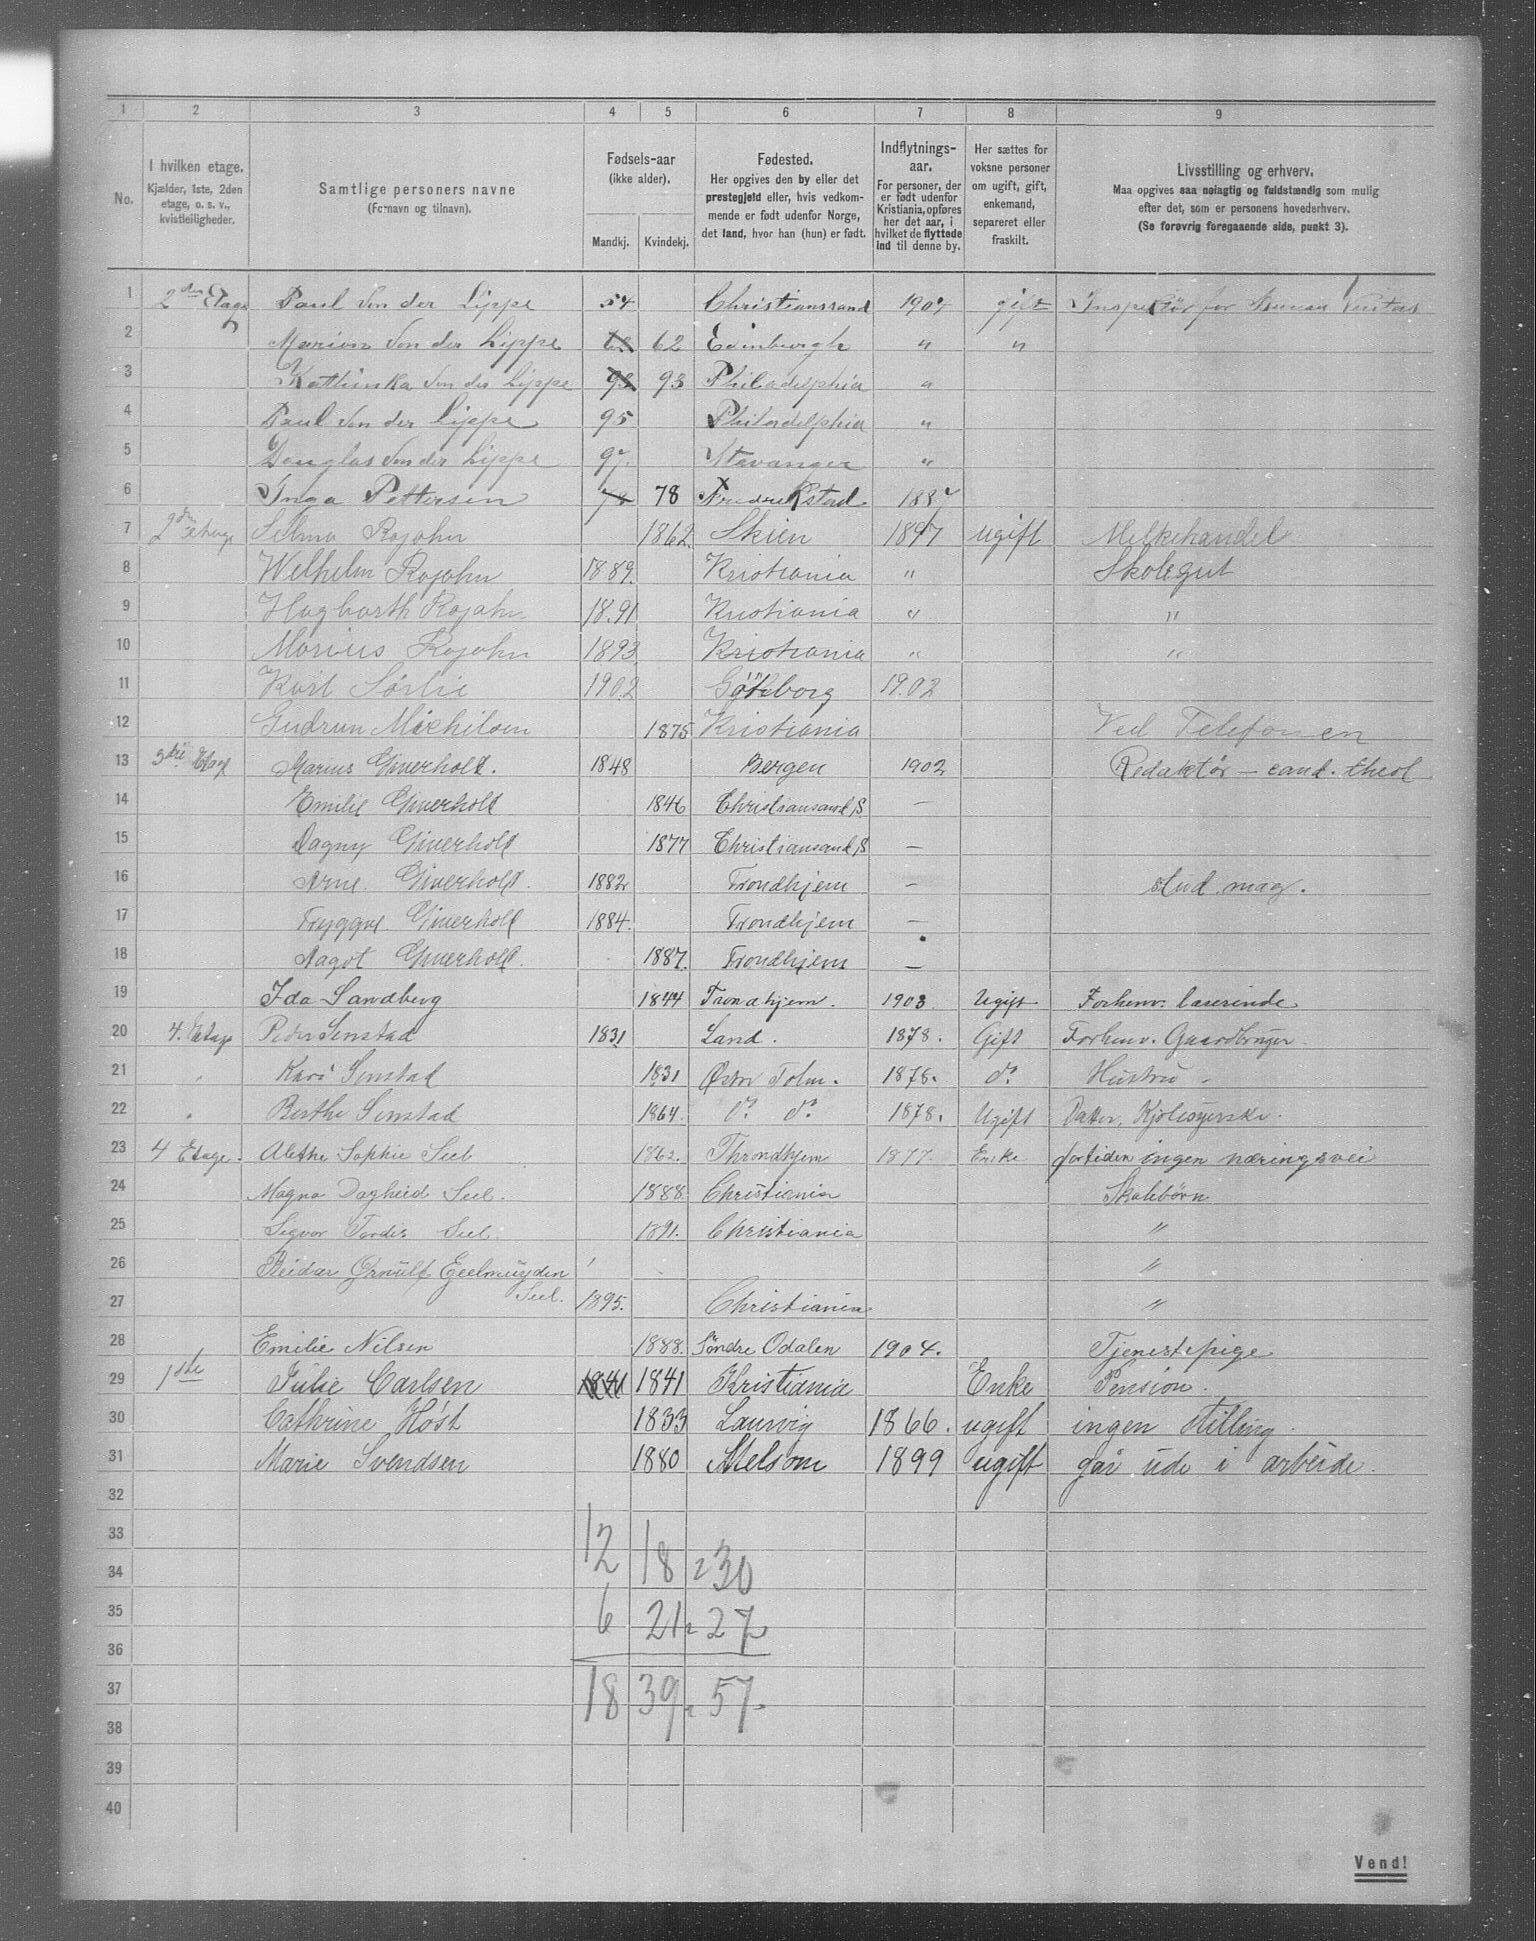 1 2 3 4 5 6 7 8 9
No.
I hvilken etage.
Kjælder, 1ste, 2den
etage, o. s. v.,
kvistleiligheder.
Samtlige personers navne
(Fornavn og tilnavn).
Fødsels-aar
(ikke alder).
Mandkj. Kvindekj.
Fødested.
Her opgives den by eller det
prestegjeld eller, hvis vedkom-
mende er født udenfor Norge,
det land, hvor han (hun) er født.
Indflytnings-
aar.
For personer, der
er født udenfor
Kristiania, opføres
her det aar, i
hvilket de flyttede
ind til denne by.
Her sættes for
voksne personer
om ugift, gift,
enkemand,
separeret eller
fraskilt.
Livsstilling og erhverv.
Maa opgives saa nøiagtig og fuldstændig som mulig
efter det, som er personens hovederhverv.
(Se forøvrig foregaaende side, punkt 3).
1 2den Etage Paul von der Lippe 54 Christianssand 1902 gift Inspektør for
2 Marion von der Lippe 62 Edinburgh " "
3 Kathinka von der Lippe 93 Philadelphia "
4 Paul von der Lippe 95 Philadelphia "
5 Douglas von der Lippe 97. Stavanger "
6 Inga Pettersen 78 78 Fredrikstad
7 2den etage Selma Rojahn 1862. Skien 1897 ugift Melkehandel
8 Wilhelm Rojahn 1889. Kristiania " Skolegut
9 Hagbarth Rojahn 1891 Kristiania " "
10 Marius Rojahn 1893 Kristiania " "
11 Karl Sørlie 1902 Göteborg 1902
12 Gudrun Michilsen 1875 Kristiania Ved Telefonen
13 3die Etage Marius Giverholt. 1848 Bergen 1902 Redaktør — cand. theol
14 Emilie Giverholt 1846 Christiansand S —
15 Dagny Giverholt 1877 Christiansand S —
16 Arne Giverholt. 1882 Trondhjem — stud. mag.
17 Tryggve Giverholt 1884. Trondhjem —
18 Aagot Giverholt. 1887. Trondhjem —
19 Ida Sandberg 1844 Trondhjem. 1903 Ugift Forhenv: lærerinde
20 4. Etage Peder Senstad 1831 Land. 1878. Gift Forhenv. Gaardbruger
21 " Kari Senstad 1831 Østr Toln. 1878. do Hustru
22 " Berthe Senstad 1864. do do 1878. Ugift Datter, Kjolesyerske.
23 4 Etage. Alethe Sophie Seel 1862. Throndhjem 1877 Enke fortiden ingen næringsvei
24 Magna Dagheid Seel. 1888 Christiania Skolebørn
25 Sigvor Tordis Seel. 1891. Christiania "
26 Reidar Ørnulf Geelmuyden "
27 Seel. 1895. Christiania "
28 Emilie Nilsen 1888. Søndre Odalen 1904. Tjenestepige
29 1ste Julie Carlsen 1841 1841 Kristiania Enke Pension.
30 Cathrine Høst 1833 Laurvig 1866. ugift ingen stilling.
31 Marie Svendsen 1880 Melsom 1899 ugift går ude i arbeide.
32
33
12 18 = 30
34
35 6 21 = 27
36
37 18 39 = 57.
38
39
40
Vend!